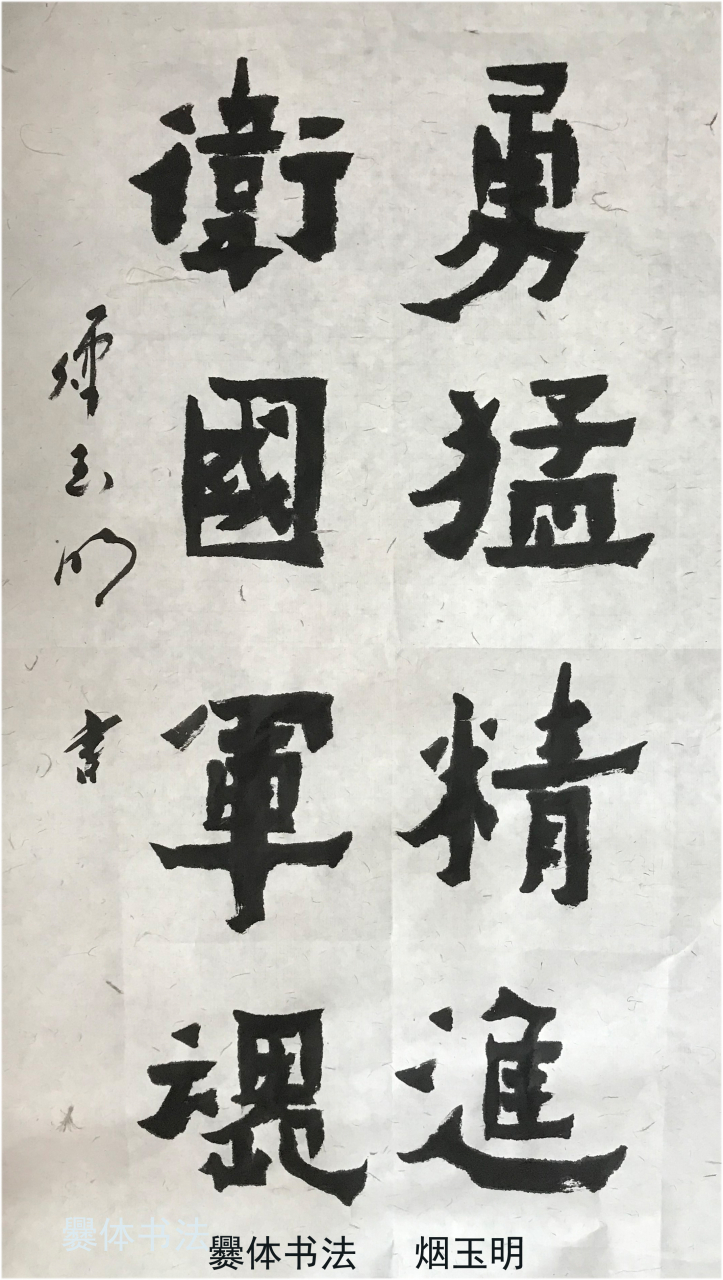 勇猛精進
衛國軍魂
煙玉明 書
爨体书法
爨体书法 烟玉明